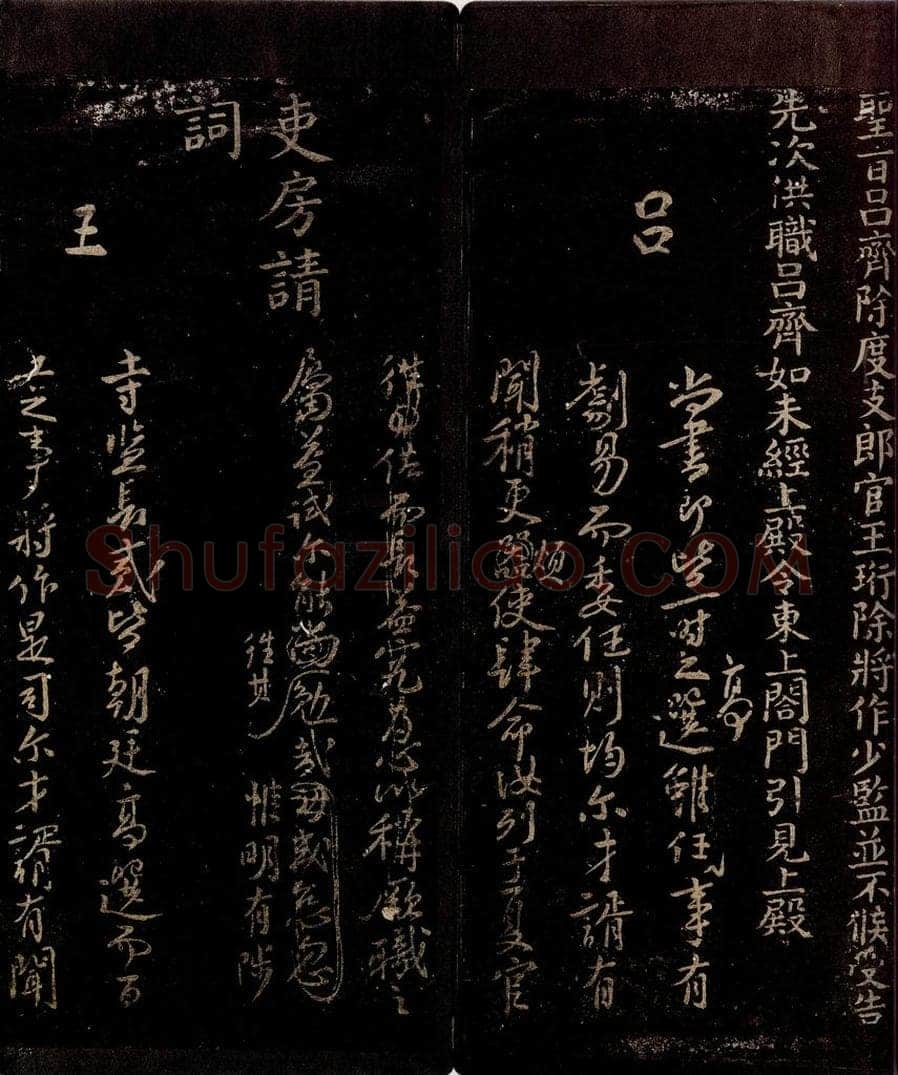 聖旨呂齊除度支郎官王珩除將作少監並不候受告
先次供職呂齊如未經上殿令東上閤門引見上殿
呂
尚書郎皆一時之選雖任事有
高
劇易而委任則均尔才諝有
聞稍更使肆命汝列于夏官
為心以稱厥職之
惟明有陟
往其
吏房請
詞
王
寺監長貳皆朝廷高選而百
工之事將作是司尔才諝有聞
Shufaziliao.COM